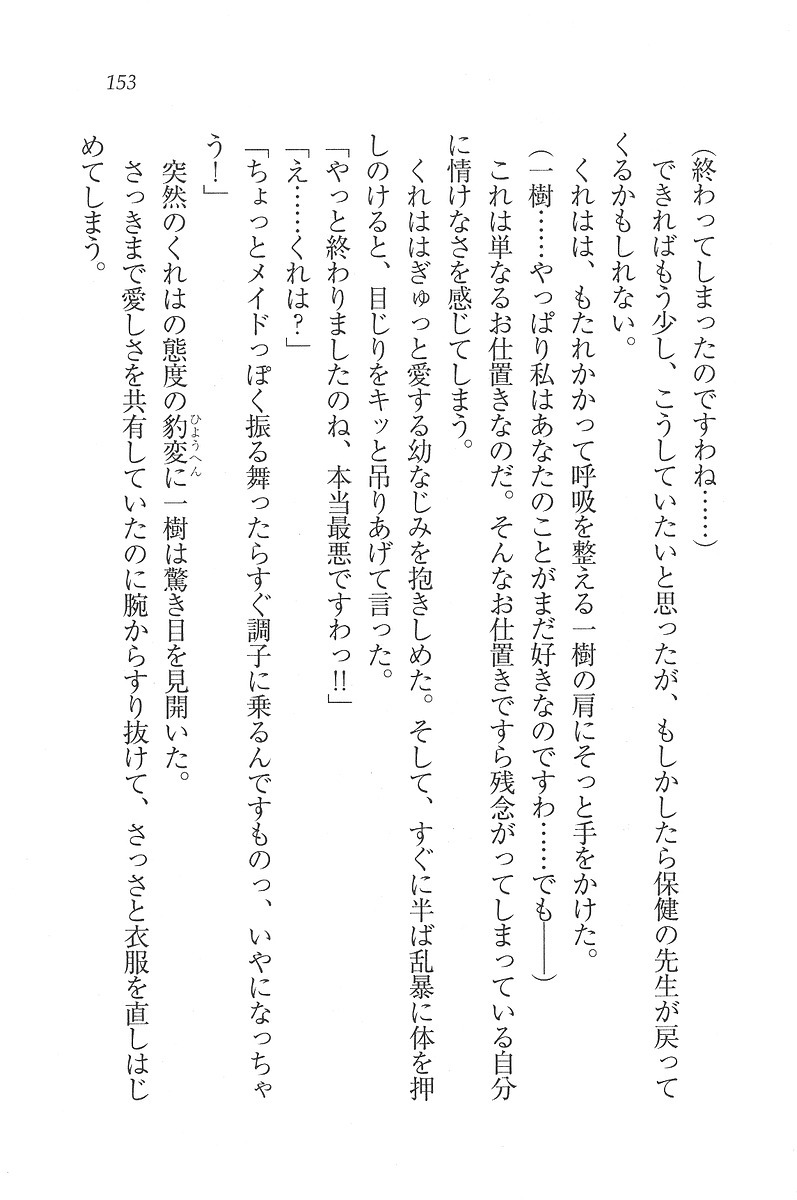 153
（終わってしまったのですわね……）
できればもう少し、こうしていたいと思ったが、もしかしたら保健の先生が戻って
くるかもしれない。
くれはは、もたれかかって呼吸を整える一樹の肩にそっと手をかけた。
（一樹……やっぱり私はあなたのことがまだ好きなのですわ……でも――）
これは単なるお仕置きなのだ。そんなお仕置きですら残念がってしまっている自分
に情けなさを感じてしまう。
くれははぎゅっと愛する幼なじみを抱きしめた。そして、すぐに半ば乱暴に体を押
しのけると、目じりをキッと吊りあげて言った。
「やっと終わりましたのね、本当最悪ですわっ!!」
「え……くれは？」
「ちょっとメイドっぽく振る舞ったらすぐ調子に乗るんですものっ、いやになっちゃ
う！」
突然のくれはの態度の豹変に一樹は驚き目を見開いた。
ひようへん
さっきまで愛しさを共有していたのに腕からすり抜けて、さっさと衣服を直しはじ
めてしまう。